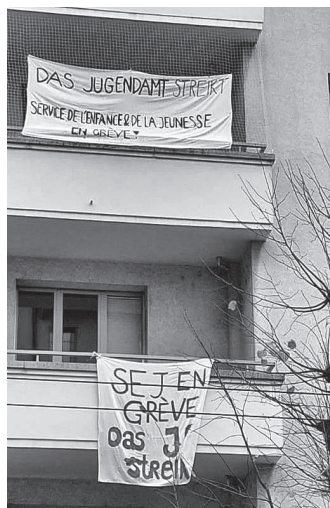 DAS JUGENDAMT STREIKT
SERVICE DE L'ENFANCE & DE LA JEUNESSE
EN GRÈVE!
SEJ EN
GRÈVE
Das J'
streik